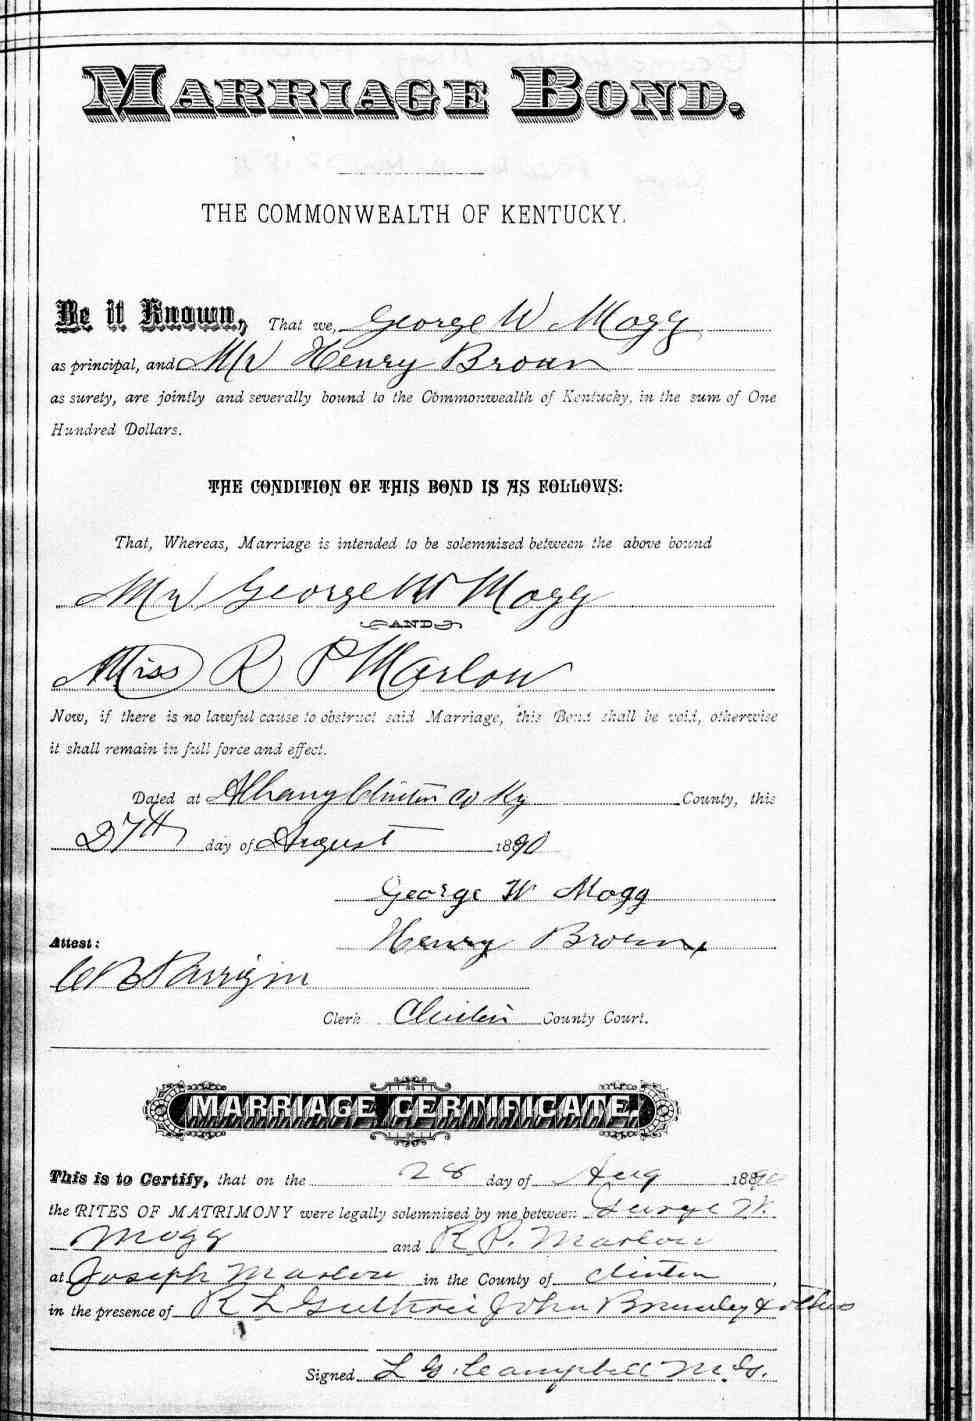 MARRIAGE BOND.
THE COMMONWEALTH OF KENTUCKY.
Be it Known, That we, George W Mogg
as principal, and Mr Henry Brown
as surety, are jointly and severally bound to the Commonwealth of Kentucky, in the sum of One
Hundred Dollars.
THE CONDITION OF THIS BOND IS AS FOLLOWS:
That, Whereas, Marriage is intended to be solemnized between the above bound
Mr George W Mogg
AND
Miss R P Marlow
Now, if there is no lawful cause to obstruct said Marriage, this Bond shall be void, otherwise
it shall remain in full force and effect.
Dated at Albany Clinton Co Ky County, this
27th day of August 1890
George W Mogg
Henry Brown
Attest:
Parrigin
Clerk Clinton County Court.
MARRIAGE CERTIFICATE.
This is to Certify, that on the 28 day of Aug 1890
the RITES OF MATRIMONY were legally solemnized by me between George W.
Mogg and R P. Marlow
at Joseph Marlow in the County of Clinton,
in the presence of R L Guthrie John Brumley & others
Signed L G. Campbell M.G.